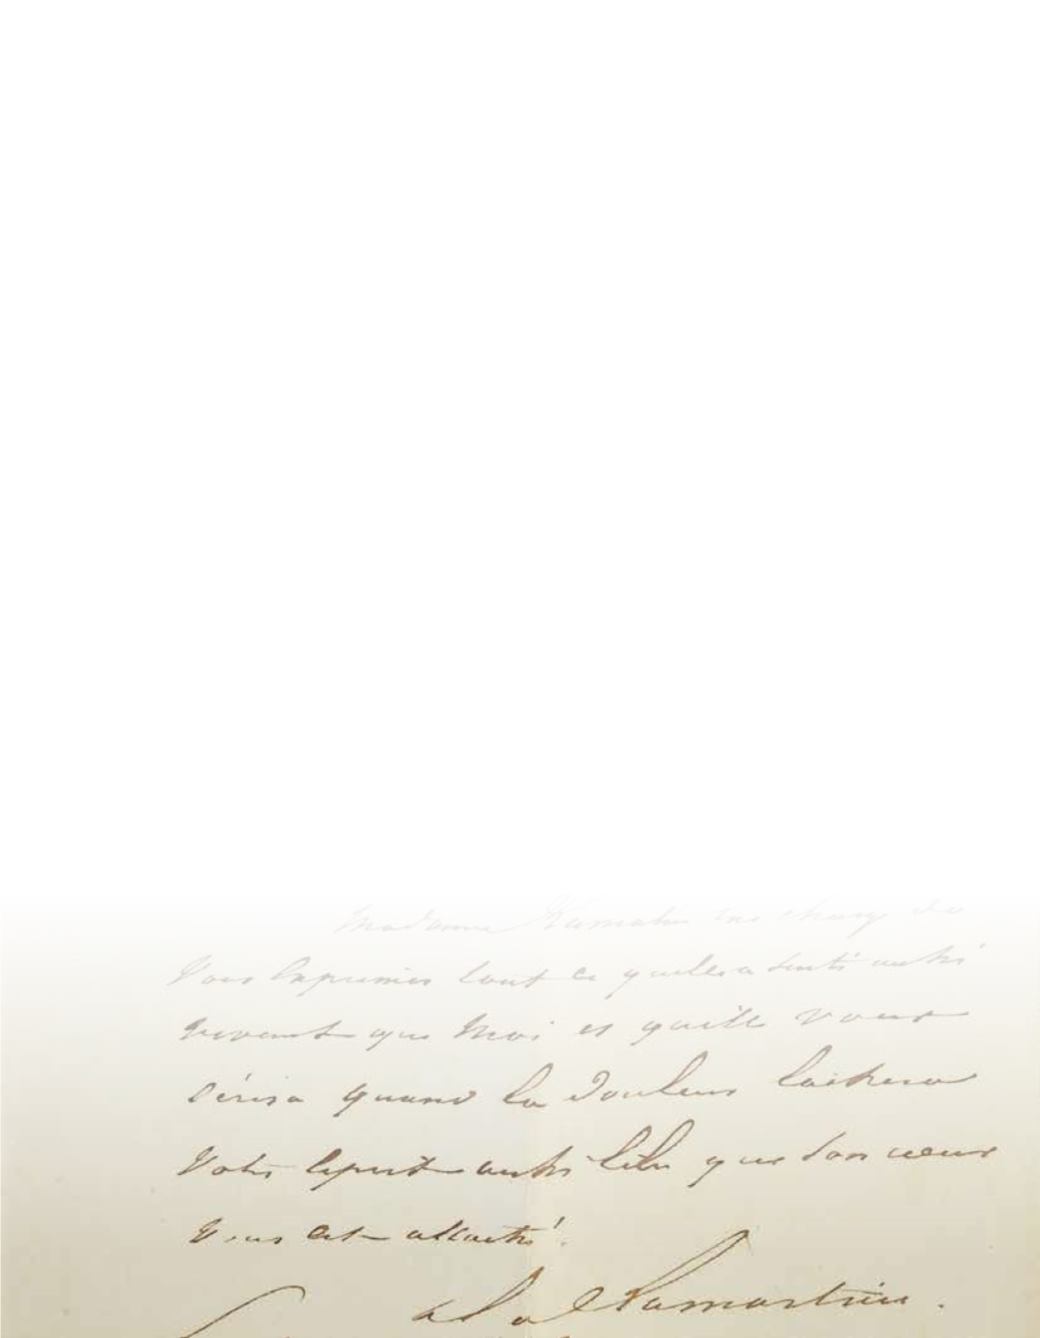 Madame
vous exprimer tout ce qu'elle a senti aussi
vivement que moi et qu'elle vous
quand la douleur laissera
votre esprit aussi libre que son cœur
vous est attaché.
Lamartine.